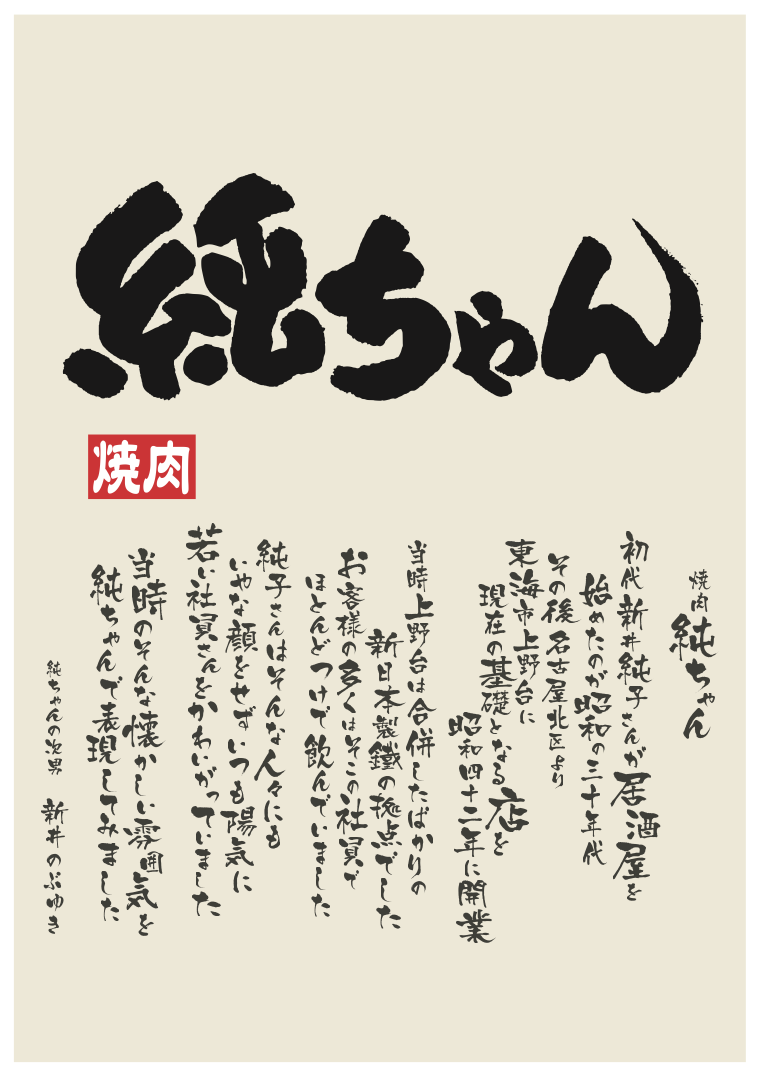 純ちゃん
焼肉
焼肉 純ちゃん
初代新井純子さんが居酒屋を
始めたのが昭和の三十年代
その後名古屋北区より
東海市上野台に
現在の基礎となる店を
昭和四十二年に開業
当時上野台は合併したばかりの
新日本製鐵の拠点でした
お客様の多くはそこの社員で
ほとんどつけで飲んでいました
純子さんはそんな人々にも
いやな顔をせずいつも陽気に
若い社員さんをかわいがっていました
当時のそんな懐かしい雰囲気を
純ちゃんで表現してみました
純ちゃんの次男 新井のぶゆき